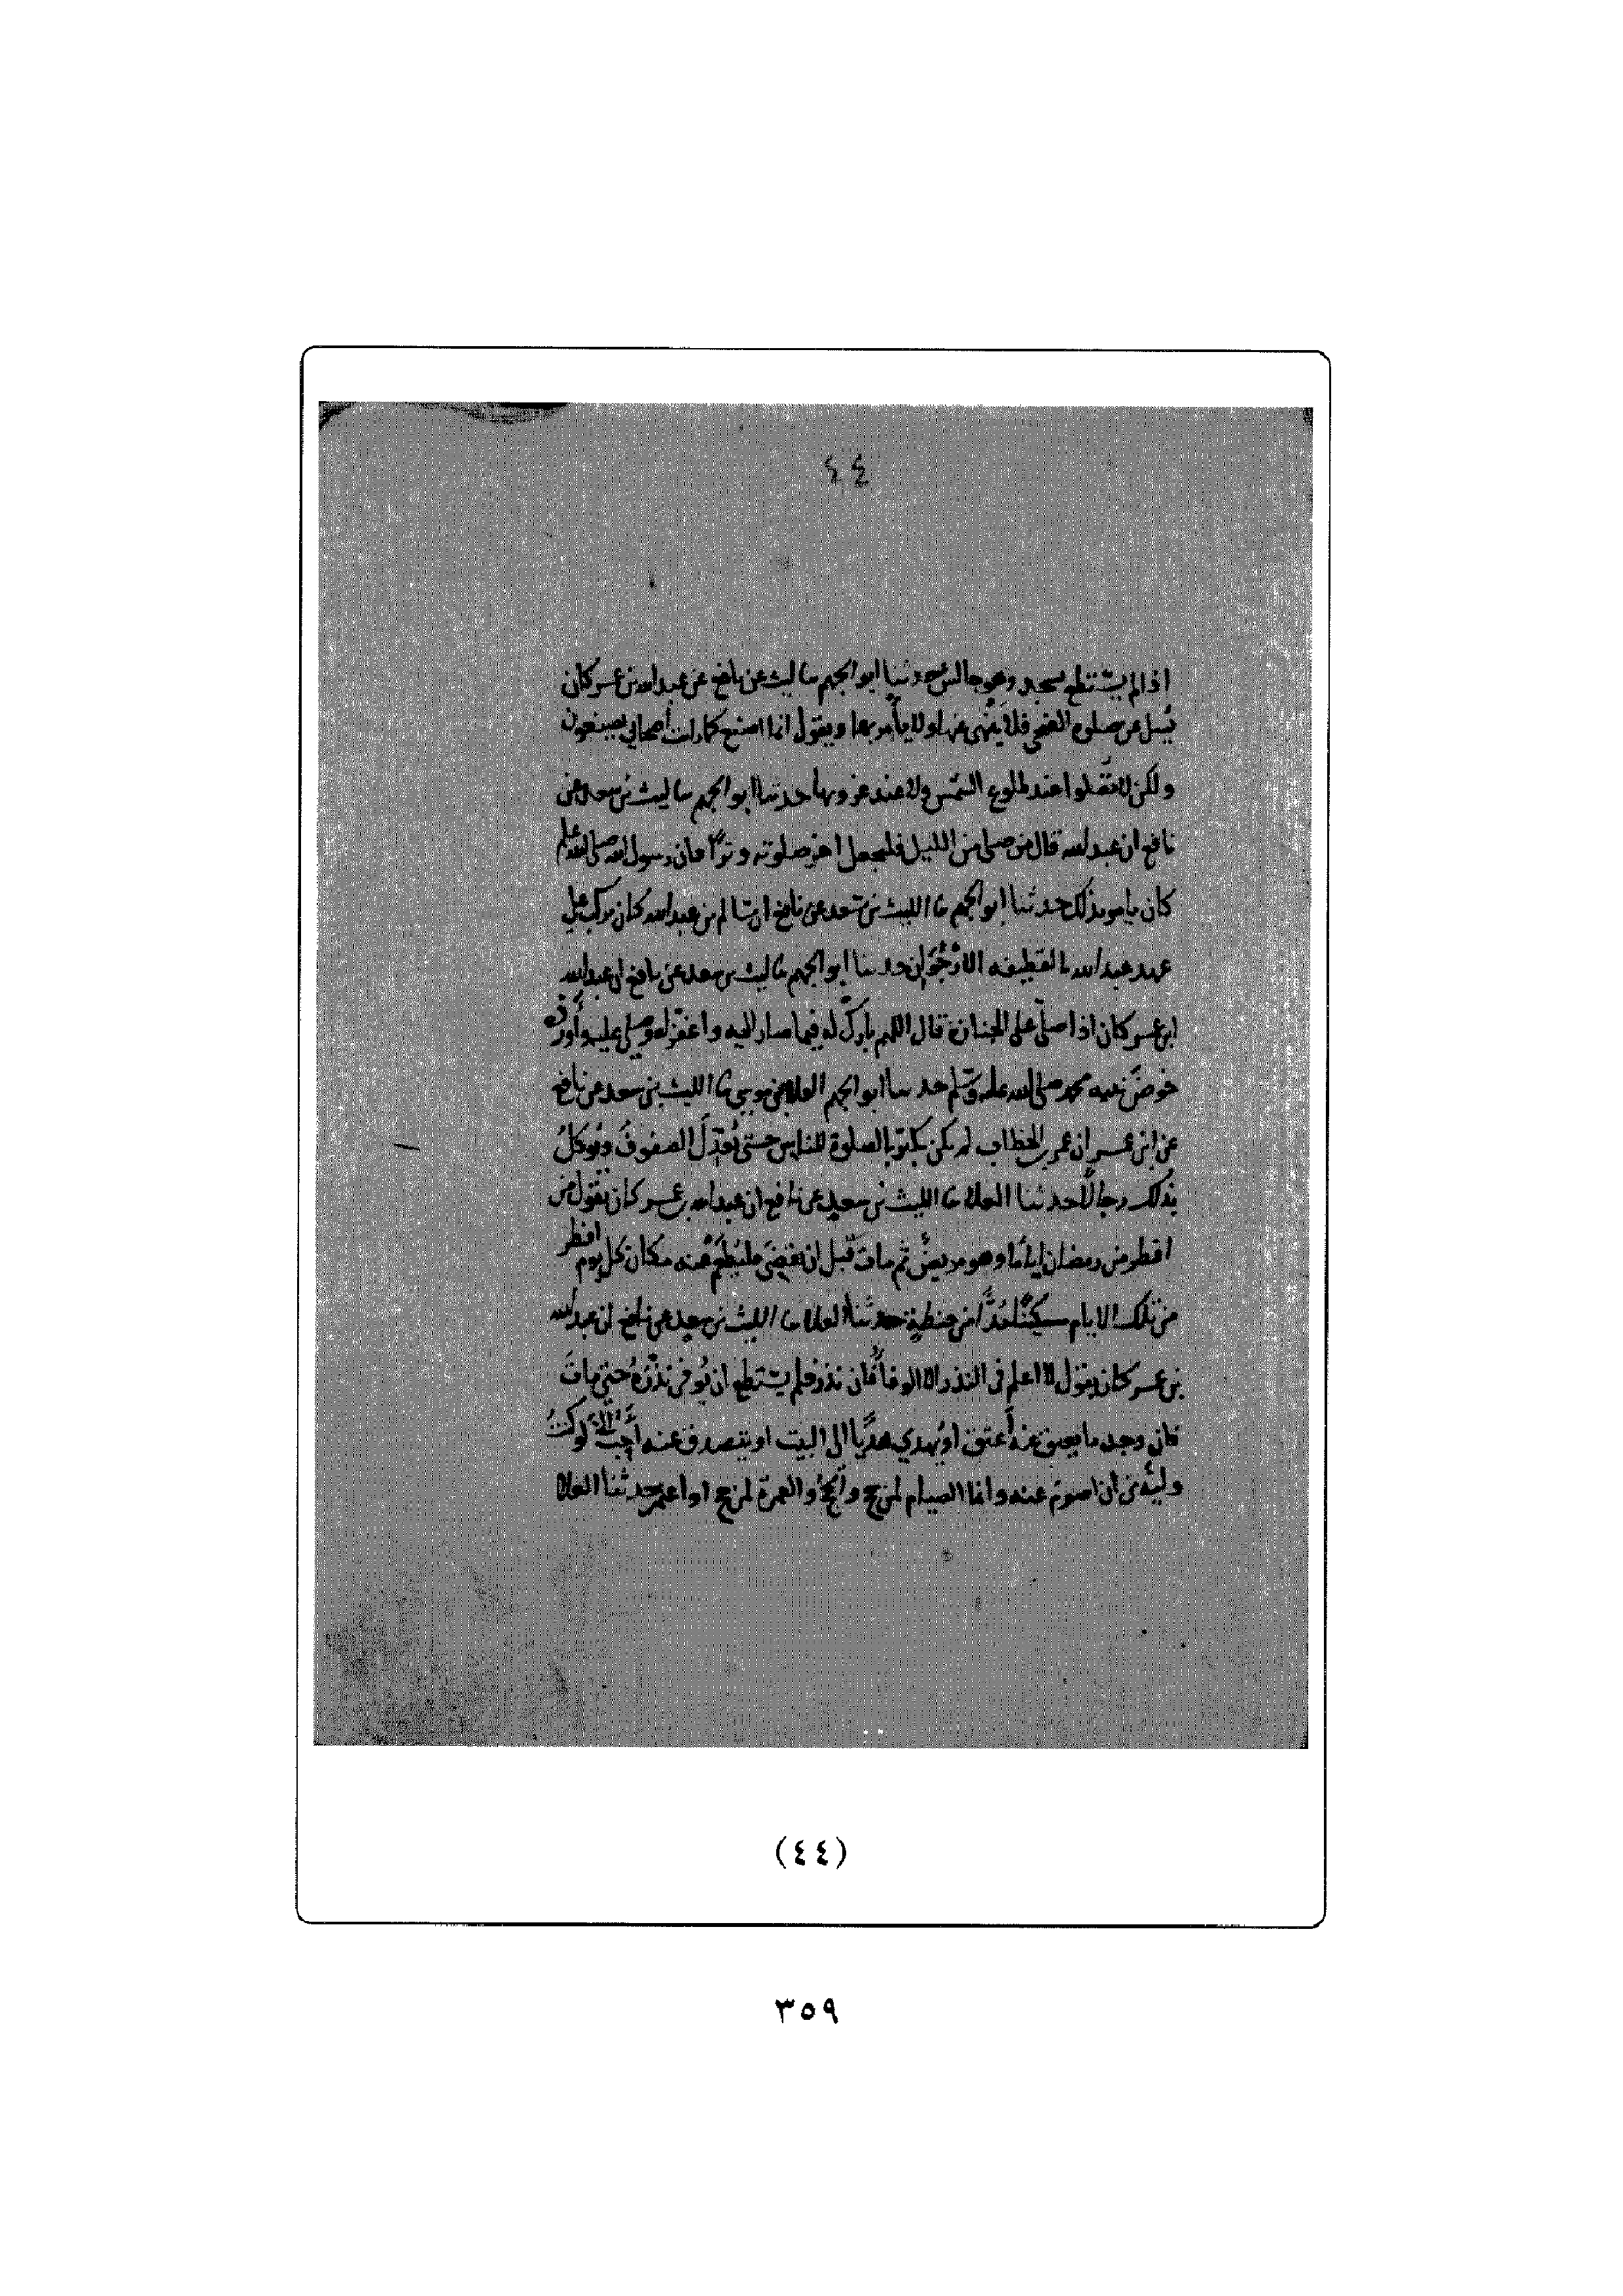 ٤٤
اذا لم يستطع سجد وهو جالس حدثنا ابو الجهم ثنا ليث عن نافع عن عبد الله بن عمر كان
يُسل عن صلوة الضحى فلا ينهى عنها ولا يأمر بها ويقول انما اصنع كما رايت أصحابي يصنعون
ولكن لا تصلوا عند طلوع الشمس ولا عند غروبها حدثنا ابو الجهم ثنا ليث بن سعد عن
نافع ان عبد الله قال من صلى من الليل فليجعل اخر صلوته وترًا فان رسول الله صلى الله عليه وسلم
كان يامر بذلك حدثنا ابو الجهم ثنا الليث بن سعد عن نافع ان سالم بن عبد الله كان يركب على
عهد عبد الله بالقطيفه الأُرْجُوَان حدثنا ابو الجهم ثنا ليث بن سعد عن نافع ان عبد الله
ابن عمر كان اذا صلى على الجنازة قال اللهم بارك له فيما صار اليه واغفر له وصلى عليه وأورده
حوض نبيه محمد صلى الله عليه وسلم حدثنا ابو الجهم العلا بن موسى ثنا الليث بن سعد عن نافع
عن ابن عمر ان عمر بن الخطاب لم يكن يكبر بالصلوة للناس حتى تُعدّل الصفوفُ ويُوكلُ
بذلك رجالًا حدثنا العلا ثنا الليث بن سعد عن نافع ان عبد الله بن عمر كان يقول من
افطر من رمضان اياما وهو مريض ثم مات قبل ان يقضى فليُطعم عنه مكان كل يوم افطر
من تلك الايام مسكينًا مُدًّا من حنطة حدثنا العلا ثنا الليث بن سعد عن نافع ان عبد الله
بن عمر كان يقول لا اعلم في النذر الا الوفا فان نذر فلم يستطع ان يُوفي نذْرَهُ حتى ماتَ
فان وجد ما يعتق عنه أعتق او يُهدي هديًا الى البيت او يتصدق عنه أحبُّ لو كنتُ
وليَّه من ان اصوم عنه وانما الصيام لمن حج والحجُّ والعمرة لمن حج او اعتمر حدثنا العلا
(٤٤)
٣٥٩